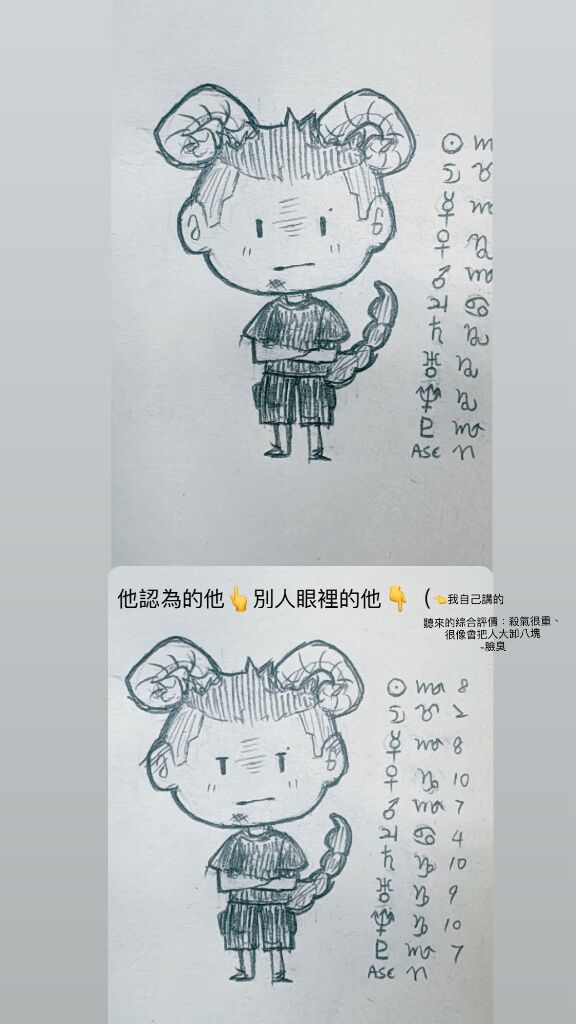 ☉ ♏
☽ ♉
☿ ♏
♀ ♑
♂ ♏
♃ ♋
♄ ♑
♅ ♑
♆ ♑
♇ ♏
Asc ♈
他認為的他👆別人眼裡的他👇（👈我自己講的
聽來的綜合評價：殺氣很重、
很像會把人大卸八塊
-臉臭
☉ ♏ 8
☽ ♉ 2
☿ ♏ 8
♀ ♑ 10
♂ ♏ 7
♃ ♋ 4
♄ ♑ 10
♅ ♑ 9
♆ ♑ 10
♇ ♏ 7
Asc ♈